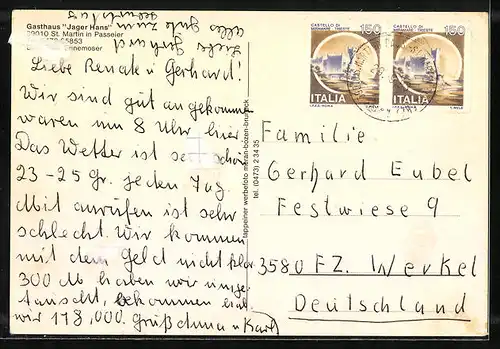 Gasthaus "Jager Hans"
39010 St. Martin in Passeier
Lieber Gerhard
alles Gute zum
Geburtstag
Liebe Renate u Gerhard!
Wir sind gut angekommen
waren um 8 Uhr hier
Das Wetter ist sehr schön
23-25 Gr. jeden Tag
Mit anrufen ist sehr
schlecht. Wir kommen
mit dem Geld nicht klar
300 M haben wir umge-
tauscht, bekommen
wir 118,000. Grüß u Karl
tappeiner werbefoto meran-bozen-bruneck
tel. (0473) 2 34 35
CASTELLO DI
MIRAMARE · TRIESTE
150
ITALIA
CASTELLO DI
MIRAMARE · TRIESTE
150
ITALIA
Familie
Gerhard Eubel
Festwiese 9
3580 FZ. Werkel
Deutschland